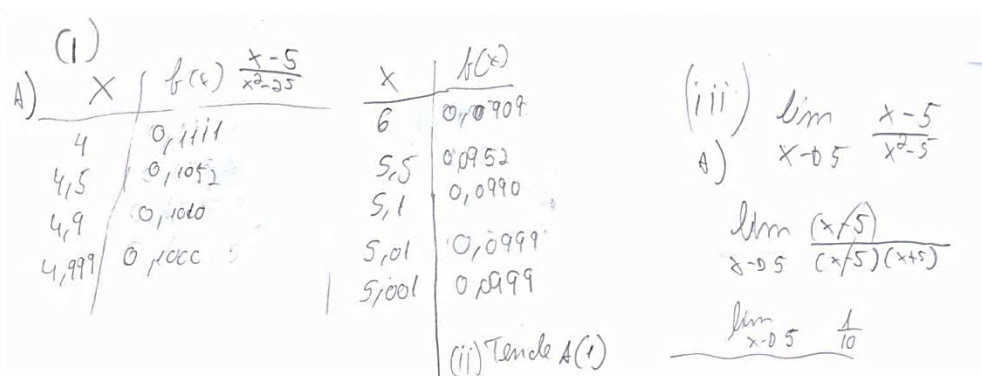 (I)
A) x f(x) x-5/x²-25
4 0,1111
4,5 0,1052
4,9 0,1010
4,999 0,1000
x f(x)
6 0,0909
5,5 0,0952
5,1 0,0990
5,01 0,0999
5,001 0,0999
(ii) Tende A(1)
(iii) lim x-5/x²-5
A) x→5
lim (x-5)/(x-5)(x+5)
x→5
lim 1/10
x→5